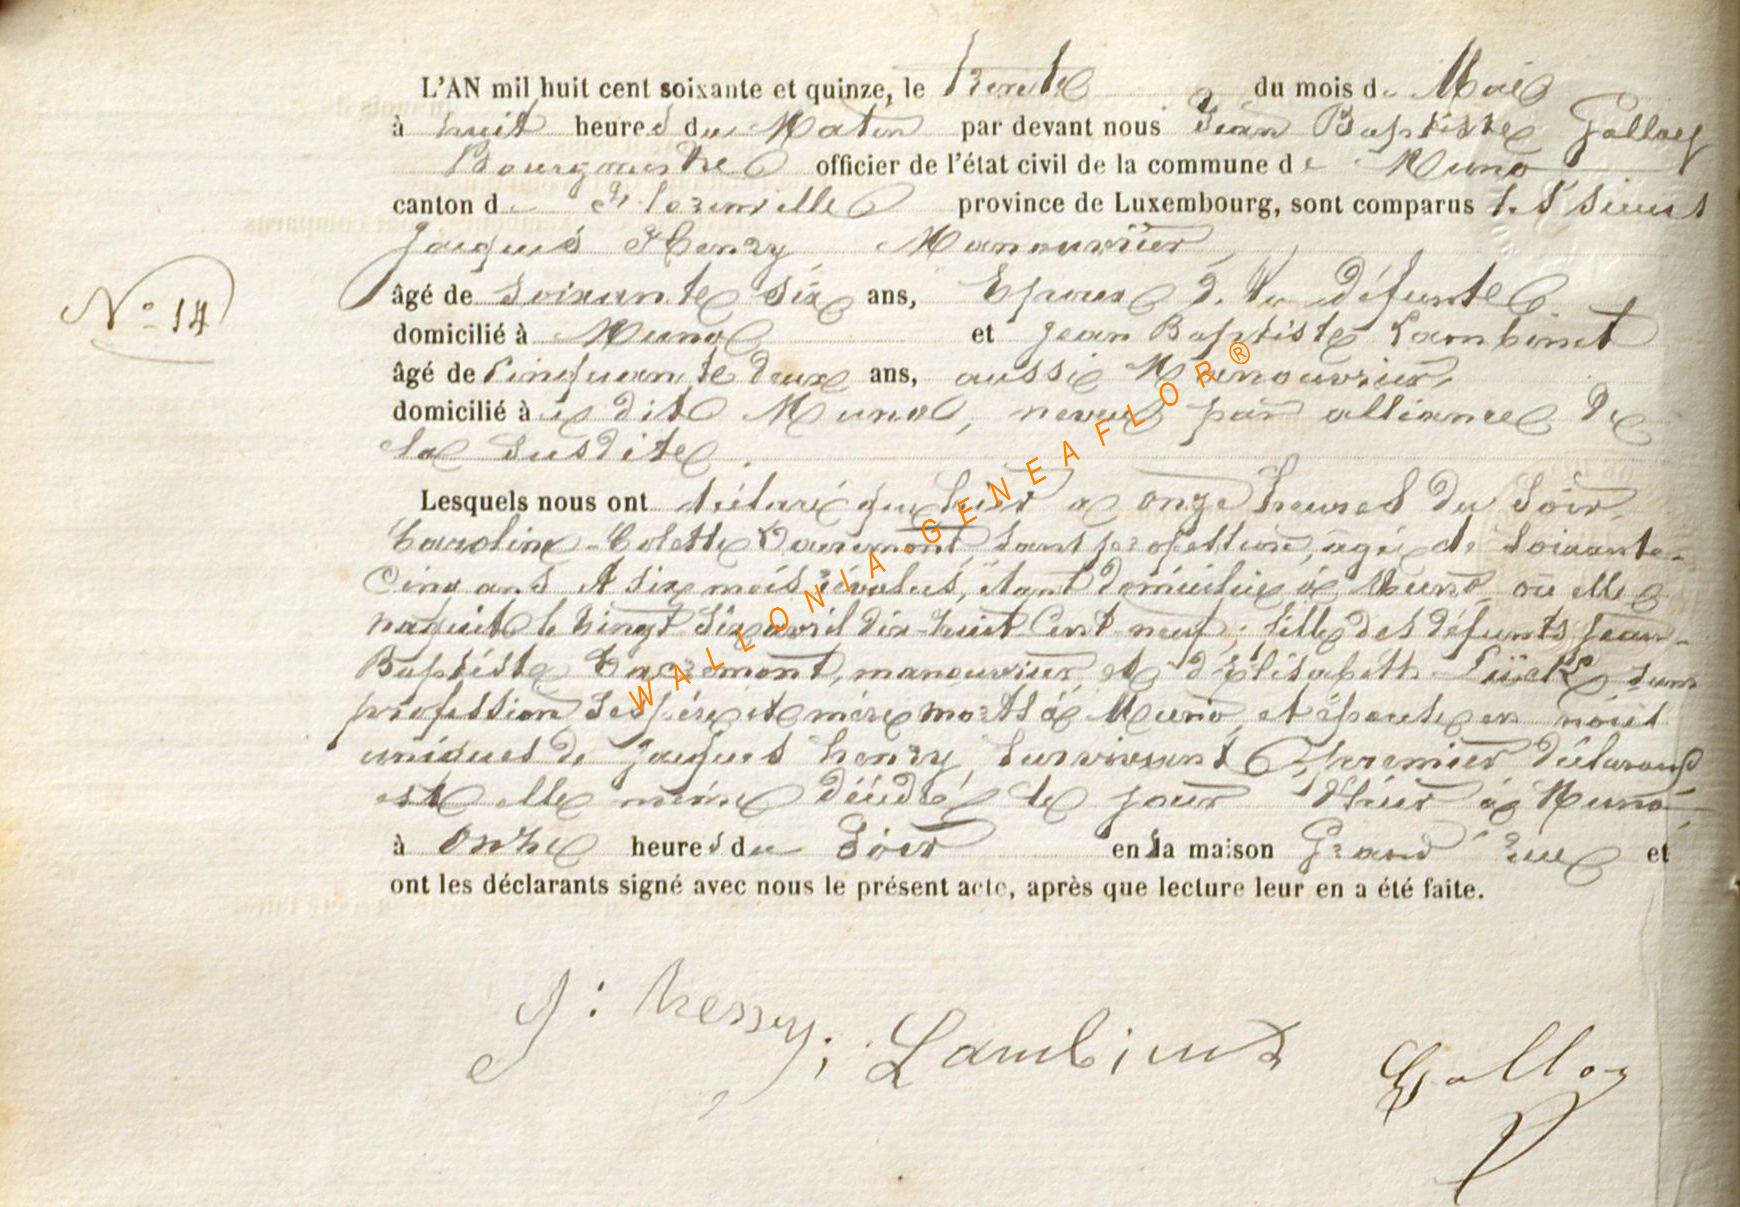 L'AN mil huit cent soixante et quinze, le trente du mois de Mai
à huit heures du Matin par devant nous Jean Baptiste Galloy
Bourgmestre officier de l'état civil de la commune de Muno
canton de Florenville province de Luxembourg, sont comparus les Srs sieurs
Jacques Henry Manouvrier,
N° 14
âgé de soixante six ans, Epoux de la défunte
domicilié à Muno et Jean Baptiste Lambinet
âgé de Cinquante deux ans, aussi Manouvrier,
domicilié à dit Muno, neveu par alliance de
la susdite.
Lesquels nous ont déclaré qu'hier à onze heures du soir
Caroline-Colette sans profession, âgée de soixante-
Cinq ans et six mois révolus, étant domiciliée à Muno, où elle
naquit le vingt six avril dix-huit Cent neuf; fille des défunts Jean-
Baptiste manouvrier, et d'Elisabeth Lück, sans
profession ses père et mère morts à Muno, et épouse en noces
uniques de Jacques henry, survivant & premier déclarant
est elle même décédée le jour d'hier à Muno,
à Onze heures du Soir en sa maison Grand'rue et
ont les déclarants signé avec nous le présent acte, après que lecture leur en a été faite.
J: henry; Lambinet Galloy
WALLONIA GENEAFLOR®